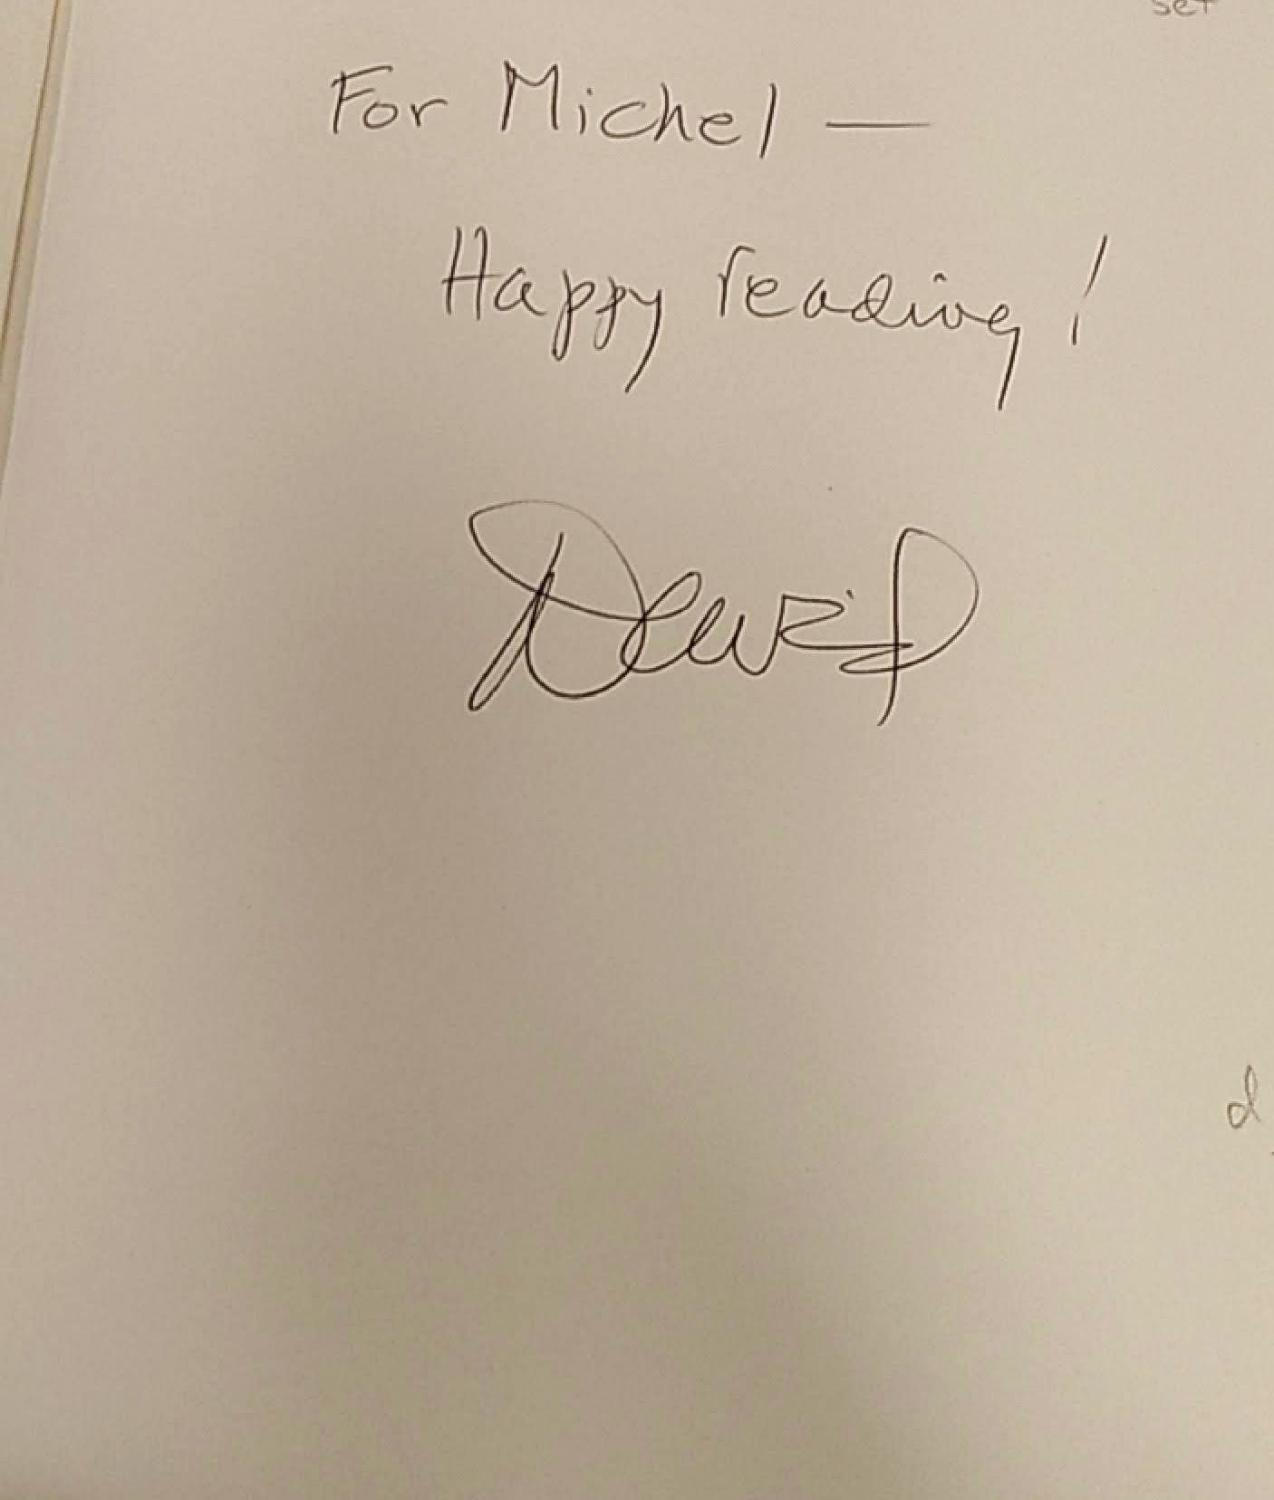 set
For Michel —
Happy reading!
David
d